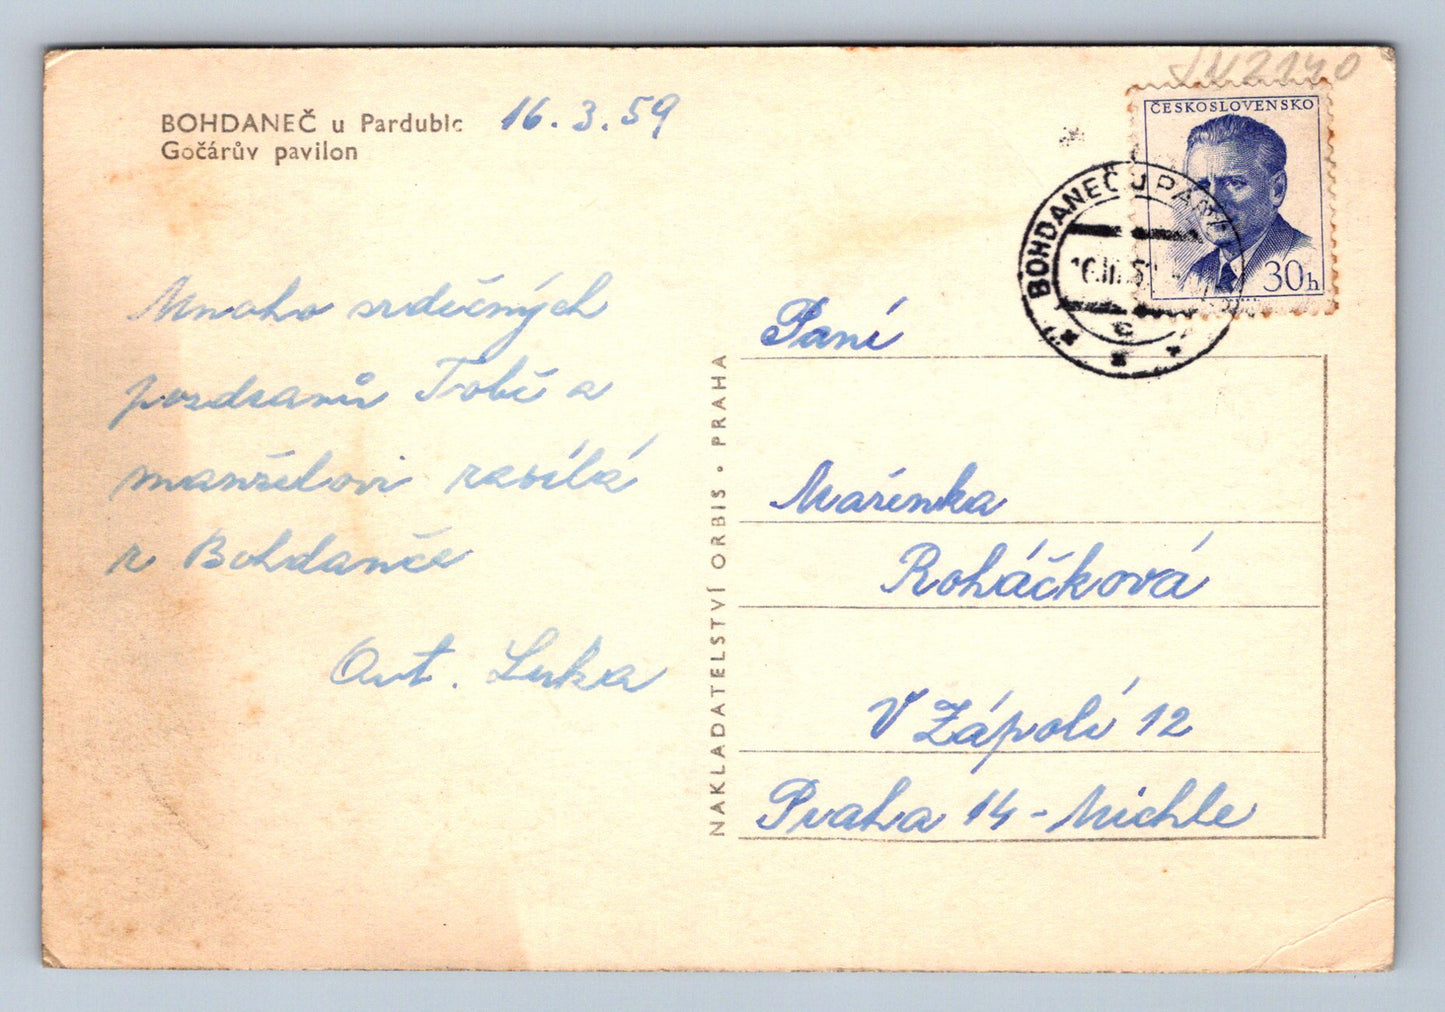 BOHDANEČ u Pardubic 16.3.59
Gočárův pavilon
ČESKOSLOVENSKO
30h
BOHDANEČ U PARD.
16.III.59
c
Mnoho srdečných
pozdravů Tobě a
manželovi zasílá
z Bohdanče
Ant. Luka
NAKLADATELSTVÍ ORBIS • PRAHA
Paní
Mařenka
Roháčková
V Zápolí 12
Praha 14 - Michle